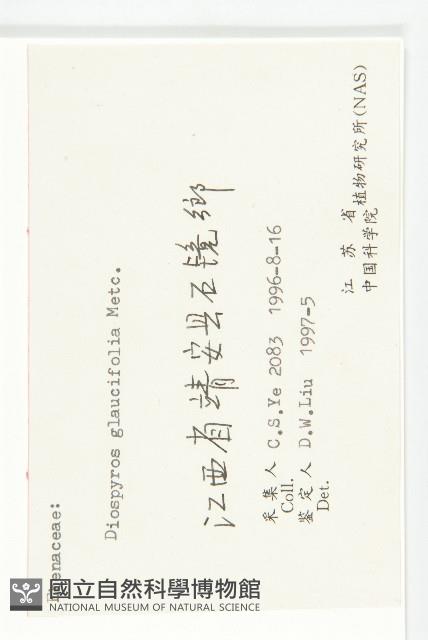 Diospyros glaucifolia Metc.
江西省靖安县石镜鄉
采集人 C.S.Ye 2083 1996-8-16
Coll.
鉴定人 D.W.Liu 1997-5
Det.
江苏省植物研究所(NAS)
中国科学院
國立自然科學博物館
NATIONAL MUSEUM OF NATURAL SCIENCE